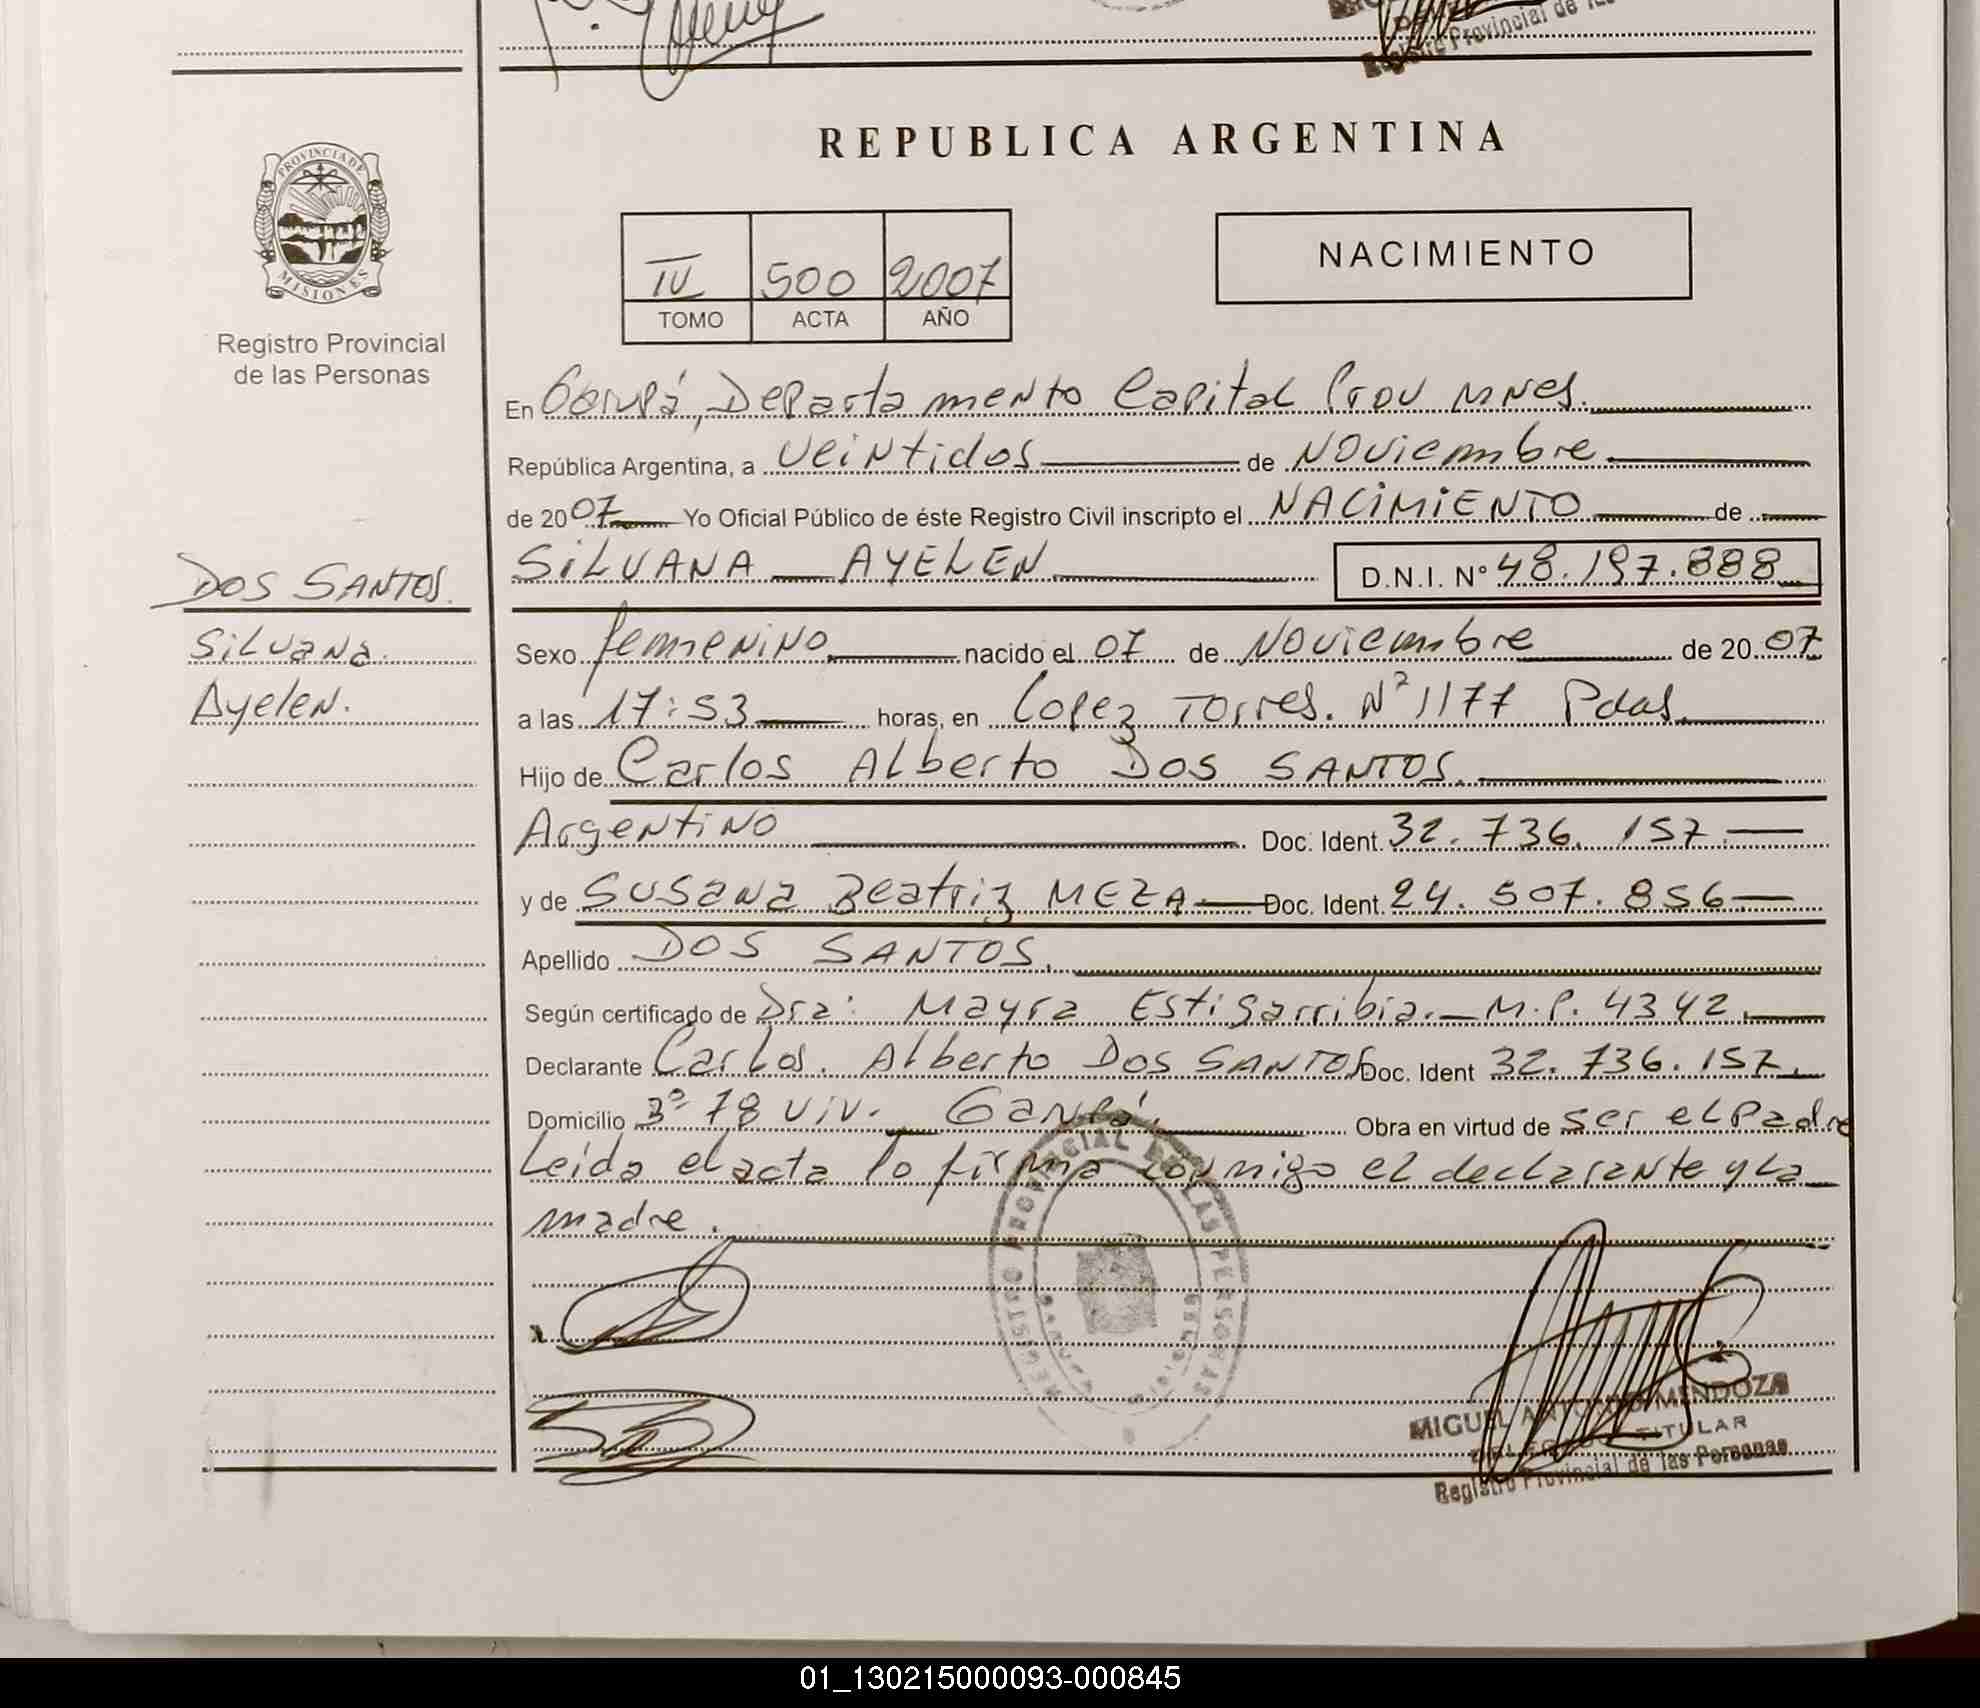 Registro Provincial de las
REPUBLICA ARGENTINA
PROVINCIA DE
MISIONES
Registro Provincial
de las Personas
IV 500 2007
TOMO ACTA AÑO
NACIMIENTO
En Garupá, Departamento Capital Prov Mnes.
República Argentina, a veintidos de Noviembre
de 2007 Yo Oficial Público de éste Registro Civil inscripto el NACIMIENTO de
DOS SANTOS.
Silvana
Ayelen.
SILVANA AYELEN D.N.I. Nº 48.197.888
Sexo femenino nacido el 07 de Noviembre de 2007
a las 17:53 horas, en Lopez Torres. Nº 1177 Pdas.
Hijo de Carlos Alberto Dos SANTOS.
Argentino Doc. Ident. 32.736.157.
y de Susana Beatriz MEZA Doc. Ident. 24.507.856
Apellido DOS SANTOS.
Según certificado de Dra: Mayra Estigarribia. M.P. 4342.
Declarante Carlos. Alberto Dos SANTOS Doc. Ident 32.736.157.
Domicilio 3º 78 viv. Garupá. Obra en virtud de ser el Padre
Leida el acta lo firma conmigo el declarante y la
madre.
REGISTRO PROVINCIAL DE LAS PERSONAS
MIGUEL ANTONIO MENDOZA
TITULAR
Registro Provincial de las Personas
01_130215000093-000845